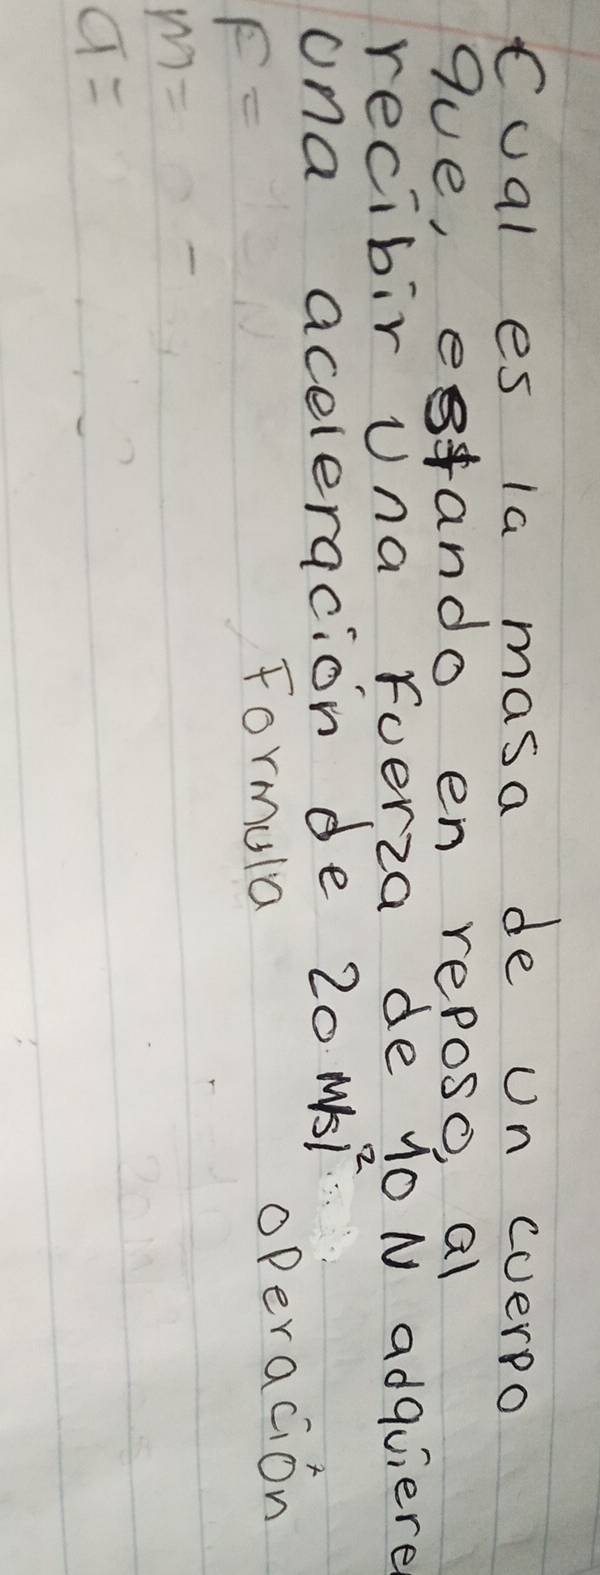 Cual es la masa de un cuerpo
que, estando en reposo, al
recibir una fuerza de 40 N adquiere
una aceleración de 20 m/s²
F= Formula operación
m=
a=